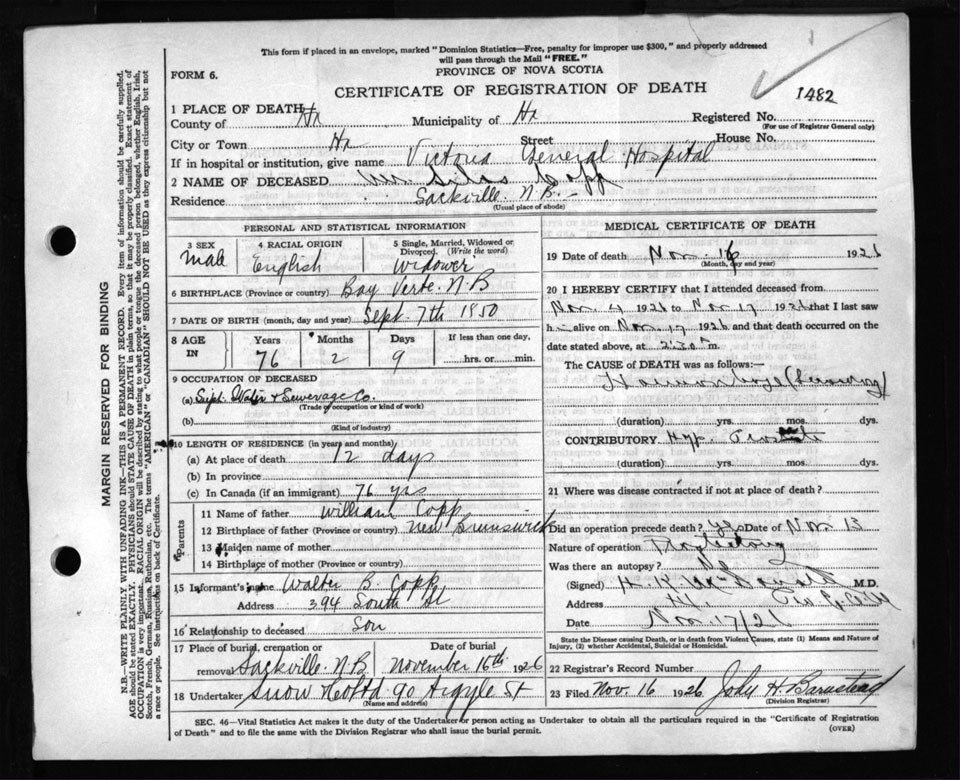 This form if placed in an envelope, marked "Dominion Statistics—Free, penalty for improper use $300," and properly addressed
will pass through the Mail "FREE."
FORM 6.
PROVINCE OF NOVA SCOTIA
CERTIFICATE OF REGISTRATION OF DEATH
1482
1 PLACE OF DEATH
County of Hx Municipality of Hx Registered No.
(For use of Registrar General only)
City or Town Hx Street House No.
If in hospital or institution, give name Victoria General Hospital
2 NAME OF DECEASED Mr. Silas Copp
Residence Sackville. N.B.
(Usual place of abode)
PERSONAL AND STATISTICAL INFORMATION
3 SEX Male
4 RACIAL ORIGIN English
5 Single, Married, Widowed or Divorced. (Write the word) Widower
6 BIRTHPLACE (Province or country) Bay Verte. N.B
7 DATE OF BIRTH (month, day and year) Sept. 7th 1850
8 AGE IN Years 76 Months 2 Days 9 If less than one day, hrs. or min.
9 OCCUPATION OF DECEASED
(a) Supt. Water & Sewerage Co.
(Trade, occupation or kind of work)
(b)
(Kind of industry)
10 LENGTH OF RESIDENCE (in years and months)
(a) At place of death 12 days
(b) In province
(c) In Canada (if an immigrant) 76 yrs
Parents
11 Name of father William Copp
12 Birthplace of father (Province or country) New Brunswick
13 Maiden name of mother
14 Birthplace of mother (Province or country)
15 Informant's name Walter B. Copp
Address 394 South St
16 Relationship to deceased Son
17 Place of burial, cremation or removal Sackville. N.B Date of burial November 16th 1926
18 Undertaker Snow & Co Ltd 90 Argyle St
(Name and address)
MEDICAL CERTIFICATE OF DEATH
19 Date of death Nov. 16 1926
(Month, day and year)
20 I HEREBY CERTIFY that I attended deceased from
Nov 4 1926 to Nov 17 1926 that I last saw
h alive on Nov. 17 1926 and that death occurred on
date stated above, at 2:30 m.
The CAUSE OF DEATH was as follows:—
Haemorrhage
(duration) yrs. mos. dys.
CONTRIBUTORY Hyp. Prostate
(duration) yrs. mos. dys.
21 Where was disease contracted if not at place of death?
Did an operation precede death? yes Date of Nov 13
Nature of operation
Was there an autopsy? No
(Signed) H. K. M.D.
Address Hx.
Date Nov. 17/26
State the Disease causing Death, or in death from Violent Causes, state (1) Means and Nature of
Injury, (2) whether Accidental, Suicidal or Homicidal.
22 Registrar's Record Number
23 Filed Nov. 16 1926 John H. Barnstead
(Division Registrar)
SEC. 46—Vital Statistics Act makes it the duty of the Undertaker or person acting as Undertaker to obtain all the particulars required in the "Certificate of Registration
of Death" and to file the same with the Division Registrar who shall issue the burial permit.
(OVER)
MARGIN RESERVED FOR BINDING
N.B.—WRITE PLAINLY WITH UNFADING INK—THIS IS A PERMANENT RECORD. Every item of information should be carefully supplied.
AGE should be stated EXACTLY. PHYSICIANS should STATE CAUSE OF DEATH in plain terms, so that it may be properly classified. Exact statement of
OCCUPATION is very important. RACIAL ORIGIN will be described by stating to what people or tongue the deceased person belonged, whether English, Irish,
Scotch, French, German, Russian, Ruthenian, etc. The terms "AMERICAN" or "CANADIAN" SHOULD NOT BE USED as they express citizenship but not
a race or people. See instructions on back of Certificate.